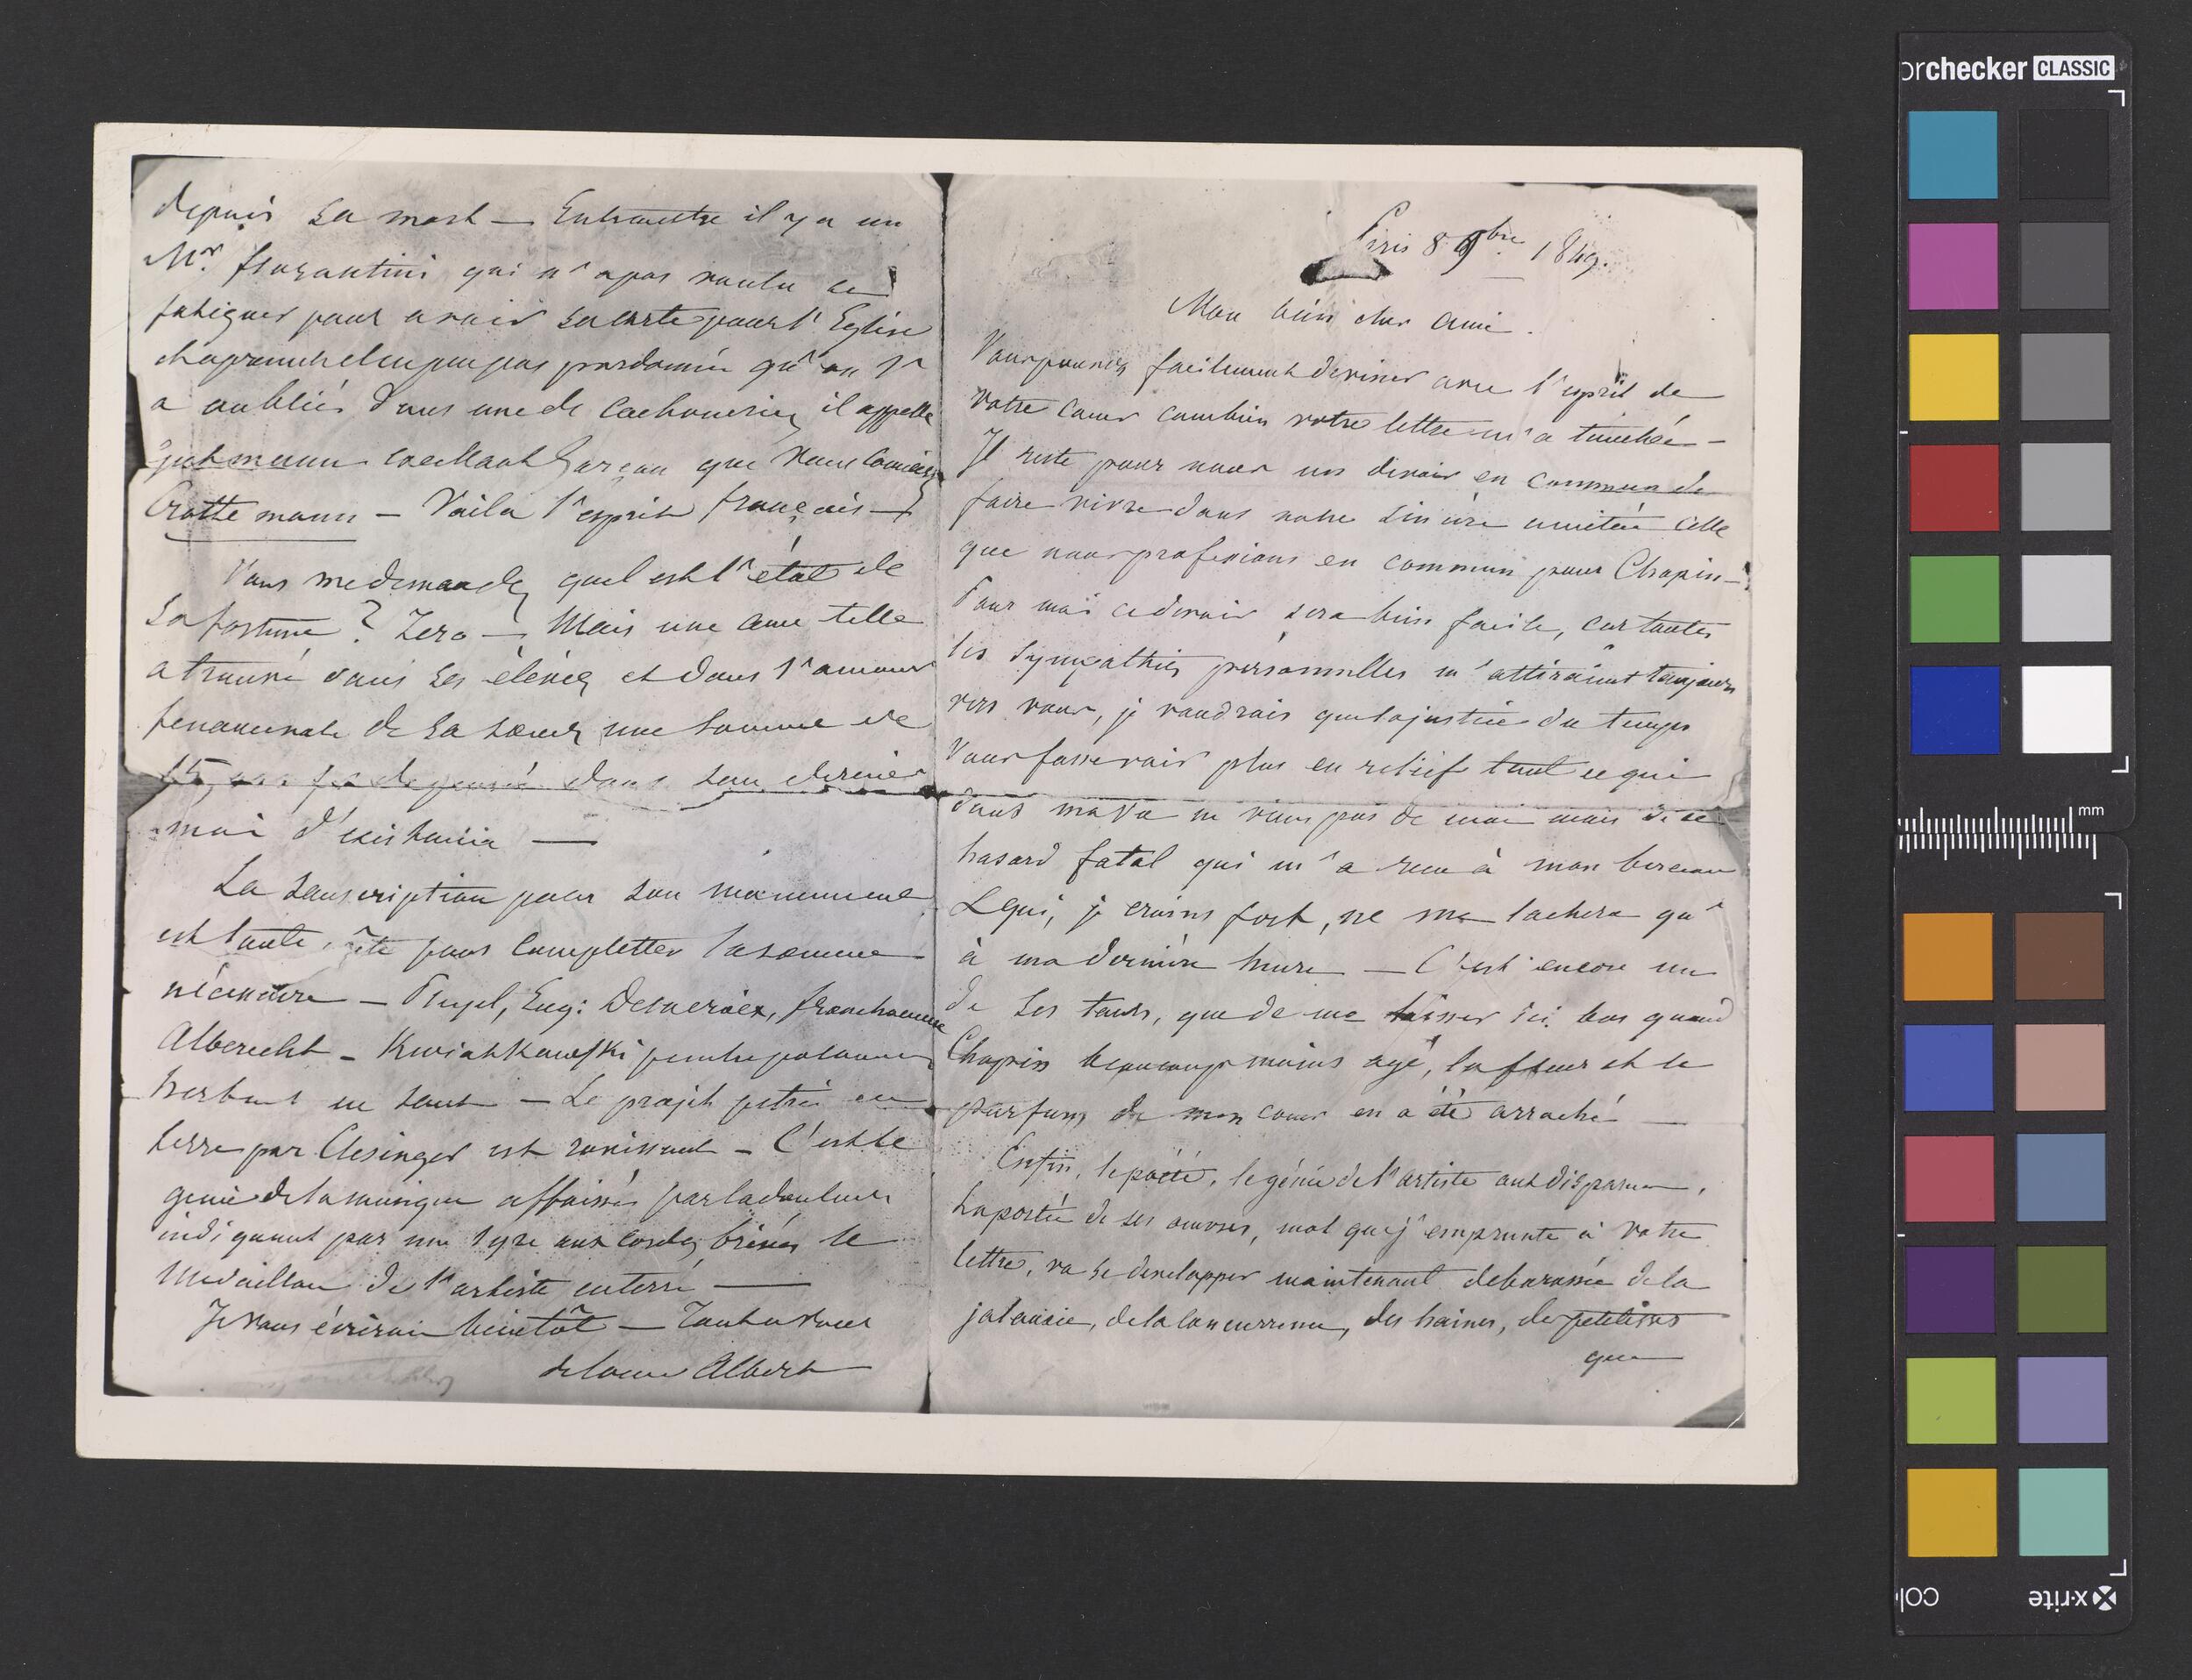 Paris 8 9bre 1849.
Mon bien cher ami.
Vous pouvez facilement deviner avec l'esprit de
votre cœur combien votre lettre m'a touchée —
Il reste pour nous un devoir en commun de
faire vivre dans notre sincère amitié celle
que nous professions en commun pour Chopin —
Pour moi ce devoir sera bien facile, car toutes
les sympathies personnelles m'attiraient toujours
vers vous, je voudrais que la justice du temps
vous fasse voir plus en relief tout ce qui
dans ma vie ne vient pas de moi mais de ce
hasard fatal qui m'a reçu à mon berceau
& qui, je crains fort, ne me lachera qu'
à ma dernière heure — C'est encore un
de ses tours, que de me laisser ici bas quand
Chopin beaucoup moins agé, la fleur et le
parfum de mon cœur en a été arraché —
Enfin, le poète, le génie de l'artiste ont disparu,
la portée de ses œuvres, mot que j'emprunte à votre
lettre, va se developper maintenant debarassée de la
jalousie, de la concurrence, des haines, des petitesses
que
depuis sa mort — Entr'autre il y a un
Mr. fiorantini qui n'a pas voulu se
fatiguer pour avoir sa carte pour l'Eglise
et ne peut pas pardonner qu'on l'
a oublié, dans une de cochoneries il appelle
Gutmann excellent garçon que vous connaissez
Crottemann — Voila l'esprit français —
Vous me demandez quel est l'état de
sa fortune? Zero — Mais une ame telle
a trouvé dans ses élèves et dans l'amour
de sa sœur, une somme de
15 dans son dernier
moi d'existence —
La souscription pour son monument
est toute pour completter la somme
nécessaire — Pleyel, Eug: Delacroix, franchomme
Alberecht — Kwiatkowski peintre polonais
Herbaut en sont — Le projet petri en
terre par Clesinger est ravissant — C'est le
genie de la musique affaissé par la douleur
indiquant par une lyre aux cordes brisées le
medaillon de l'artiste enterré —
Je vous écrirai bientôt — Tout a vous
de cœur Albert